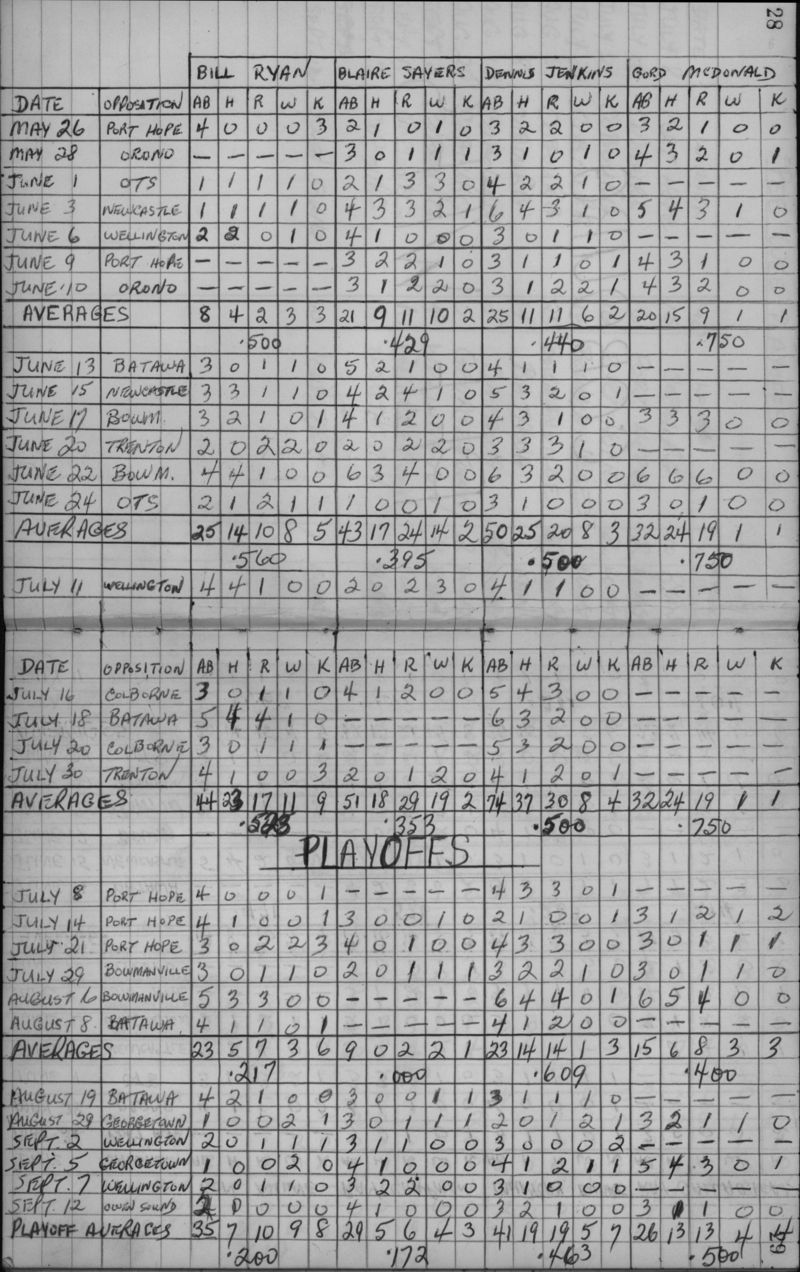 28
BILL RYAN BLAIRE SAYERS DENNIS JENKINS GORD McDONALD
DATE OPPOSITION AB H R W K AB H R W K AB H R W K AB H R W K
MAY 26 PORT HOPE 4 0 0 0 3 2 1 0 1 0 3 2 2 0 0 3 2 1 0 0
MAY 28 ORONO — — — — — 3 0 1 1 1 3 1 0 1 0 4 3 2 0 1
JUNE 1 OTS 1 1 1 1 0 2 1 3 3 0 4 2 2 1 0 — — — — —
JUNE 3 NEWCASTLE 1 1 1 1 0 4 3 3 2 1 6 4 3 1 0 5 4 3 1 0
JUNE 6 WELLINGTON 2 2 0 1 0 4 1 0 0 0 3 0 1 1 0 — — — — —
JUNE 9 PORT HOPE — — — — — 3 2 2 1 0 3 1 1 0 1 4 3 1 0 0
JUNE 10 ORONO — — — — — 3 1 2 2 0 3 1 2 2 1 4 3 2 0 0
AVERAGES 8 4 2 3 3 21 9 11 10 2 25 11 11 6 2 20 15 9 1 1
.500 .429 .440 .750
JUNE 13 BATAWA 3 0 1 1 0 5 2 1 0 0 4 1 1 1 0 — — — — —
JUNE 15 NEWCASTLE 3 3 1 1 0 4 2 4 1 0 5 3 2 0 1 — — — — —
JUNE 17 BOWM. 3 2 1 0 1 4 1 2 0 0 4 3 1 0 0 3 3 3 0 0
JUNE 20 TRENTON 2 0 2 2 0 2 0 2 2 0 3 3 3 1 0 — — — — —
JUNE 22 BOWM. 4 4 1 0 0 6 3 4 0 0 6 3 2 0 0 6 6 6 0 0
JUNE 24 OTS 2 1 2 1 1 1 0 0 1 0 3 1 0 0 0 3 0 1 0 0
AVERAGES 25 14 10 8 5 43 17 24 14 2 50 25 20 8 3 32 24 19 1 1
.560 .395 .500 .750
JULY 11 WELLINGTON 4 4 1 0 0 2 0 2 3 0 4 1 1 0 0 — — — — —
DATE OPPOSITION AB H R W K AB H R W K AB H R W K AB H R W K
JULY 16 COLBORNE 3 0 1 1 0 4 1 2 0 0 5 4 3 0 0 — — — — —
JULY 18 BATAWA 5 4 4 1 0 — — — — — 6 3 2 0 0 — — — — —
JULY 20 COLBORNE 3 0 1 1 1 — — — — — 5 3 2 0 0 — — — — —
JULY 30 TRENTON 4 1 0 0 3 2 0 1 2 0 4 1 2 0 1 — — — — —
AVERAGES 44 23 17 11 9 51 18 29 19 2 74 37 30 8 4 32 24 19 1 1
.523 .353 .500 .750
PLAYOFFS
JULY 8 PORT HOPE 4 0 0 0 1 — — — — — 4 3 3 0 1 — — — — —
JULY 14 PORT HOPE 4 1 0 0 1 3 0 0 1 0 2 1 0 0 1 3 1 2 1 2
JULY 21 PORT HOPE 3 0 2 2 3 4 0 1 0 0 4 3 3 0 0 3 0 1 1 1
JULY 29 BOWMANVILLE 3 0 1 1 0 2 0 1 1 1 3 2 2 1 0 3 0 1 1 0
AUGUST 6 BOWMANVILLE 5 3 3 0 0 — — — — — 6 4 4 0 1 6 5 4 0 0
AUGUST 8 BATAWA 4 1 1 0 1 — — — — — 4 1 2 0 0 — — — — —
AVERAGES 23 5 7 3 6 9 0 2 2 1 23 14 14 1 3 15 6 8 3 3
.217 .000 .609 .400
AUGUST 19 BATAWA 4 2 1 0 0 3 0 0 1 1 3 1 1 1 0 — — — — —
AUGUST 29 GEORGETOWN 1 0 0 2 1 3 0 1 1 1 2 0 1 2 1 3 2 1 1 0
SEPT. 2 WELLINGTON 2 0 1 1 1 3 1 1 0 0 3 0 0 0 2 — — — — —
SEPT. 5 GEORGETOWN 1 0 0 2 0 4 1 0 0 0 4 1 2 1 1 5 4 3 0 1
SEPT. 7 WELLINGTON 2 0 1 1 0 3 2 2 0 0 3 1 0 0 0 — — — — —
SEPT. 12 OWEN SOUND 2 0 0 0 0 4 1 0 0 0 3 2 1 0 0 3 1 1 0 0
PLAYOFF AVERAGES 35 7 10 9 8 29 5 6 4 3 41 19 19 5 7 26 13 13 4 4
.200 .172 .463 .500
29